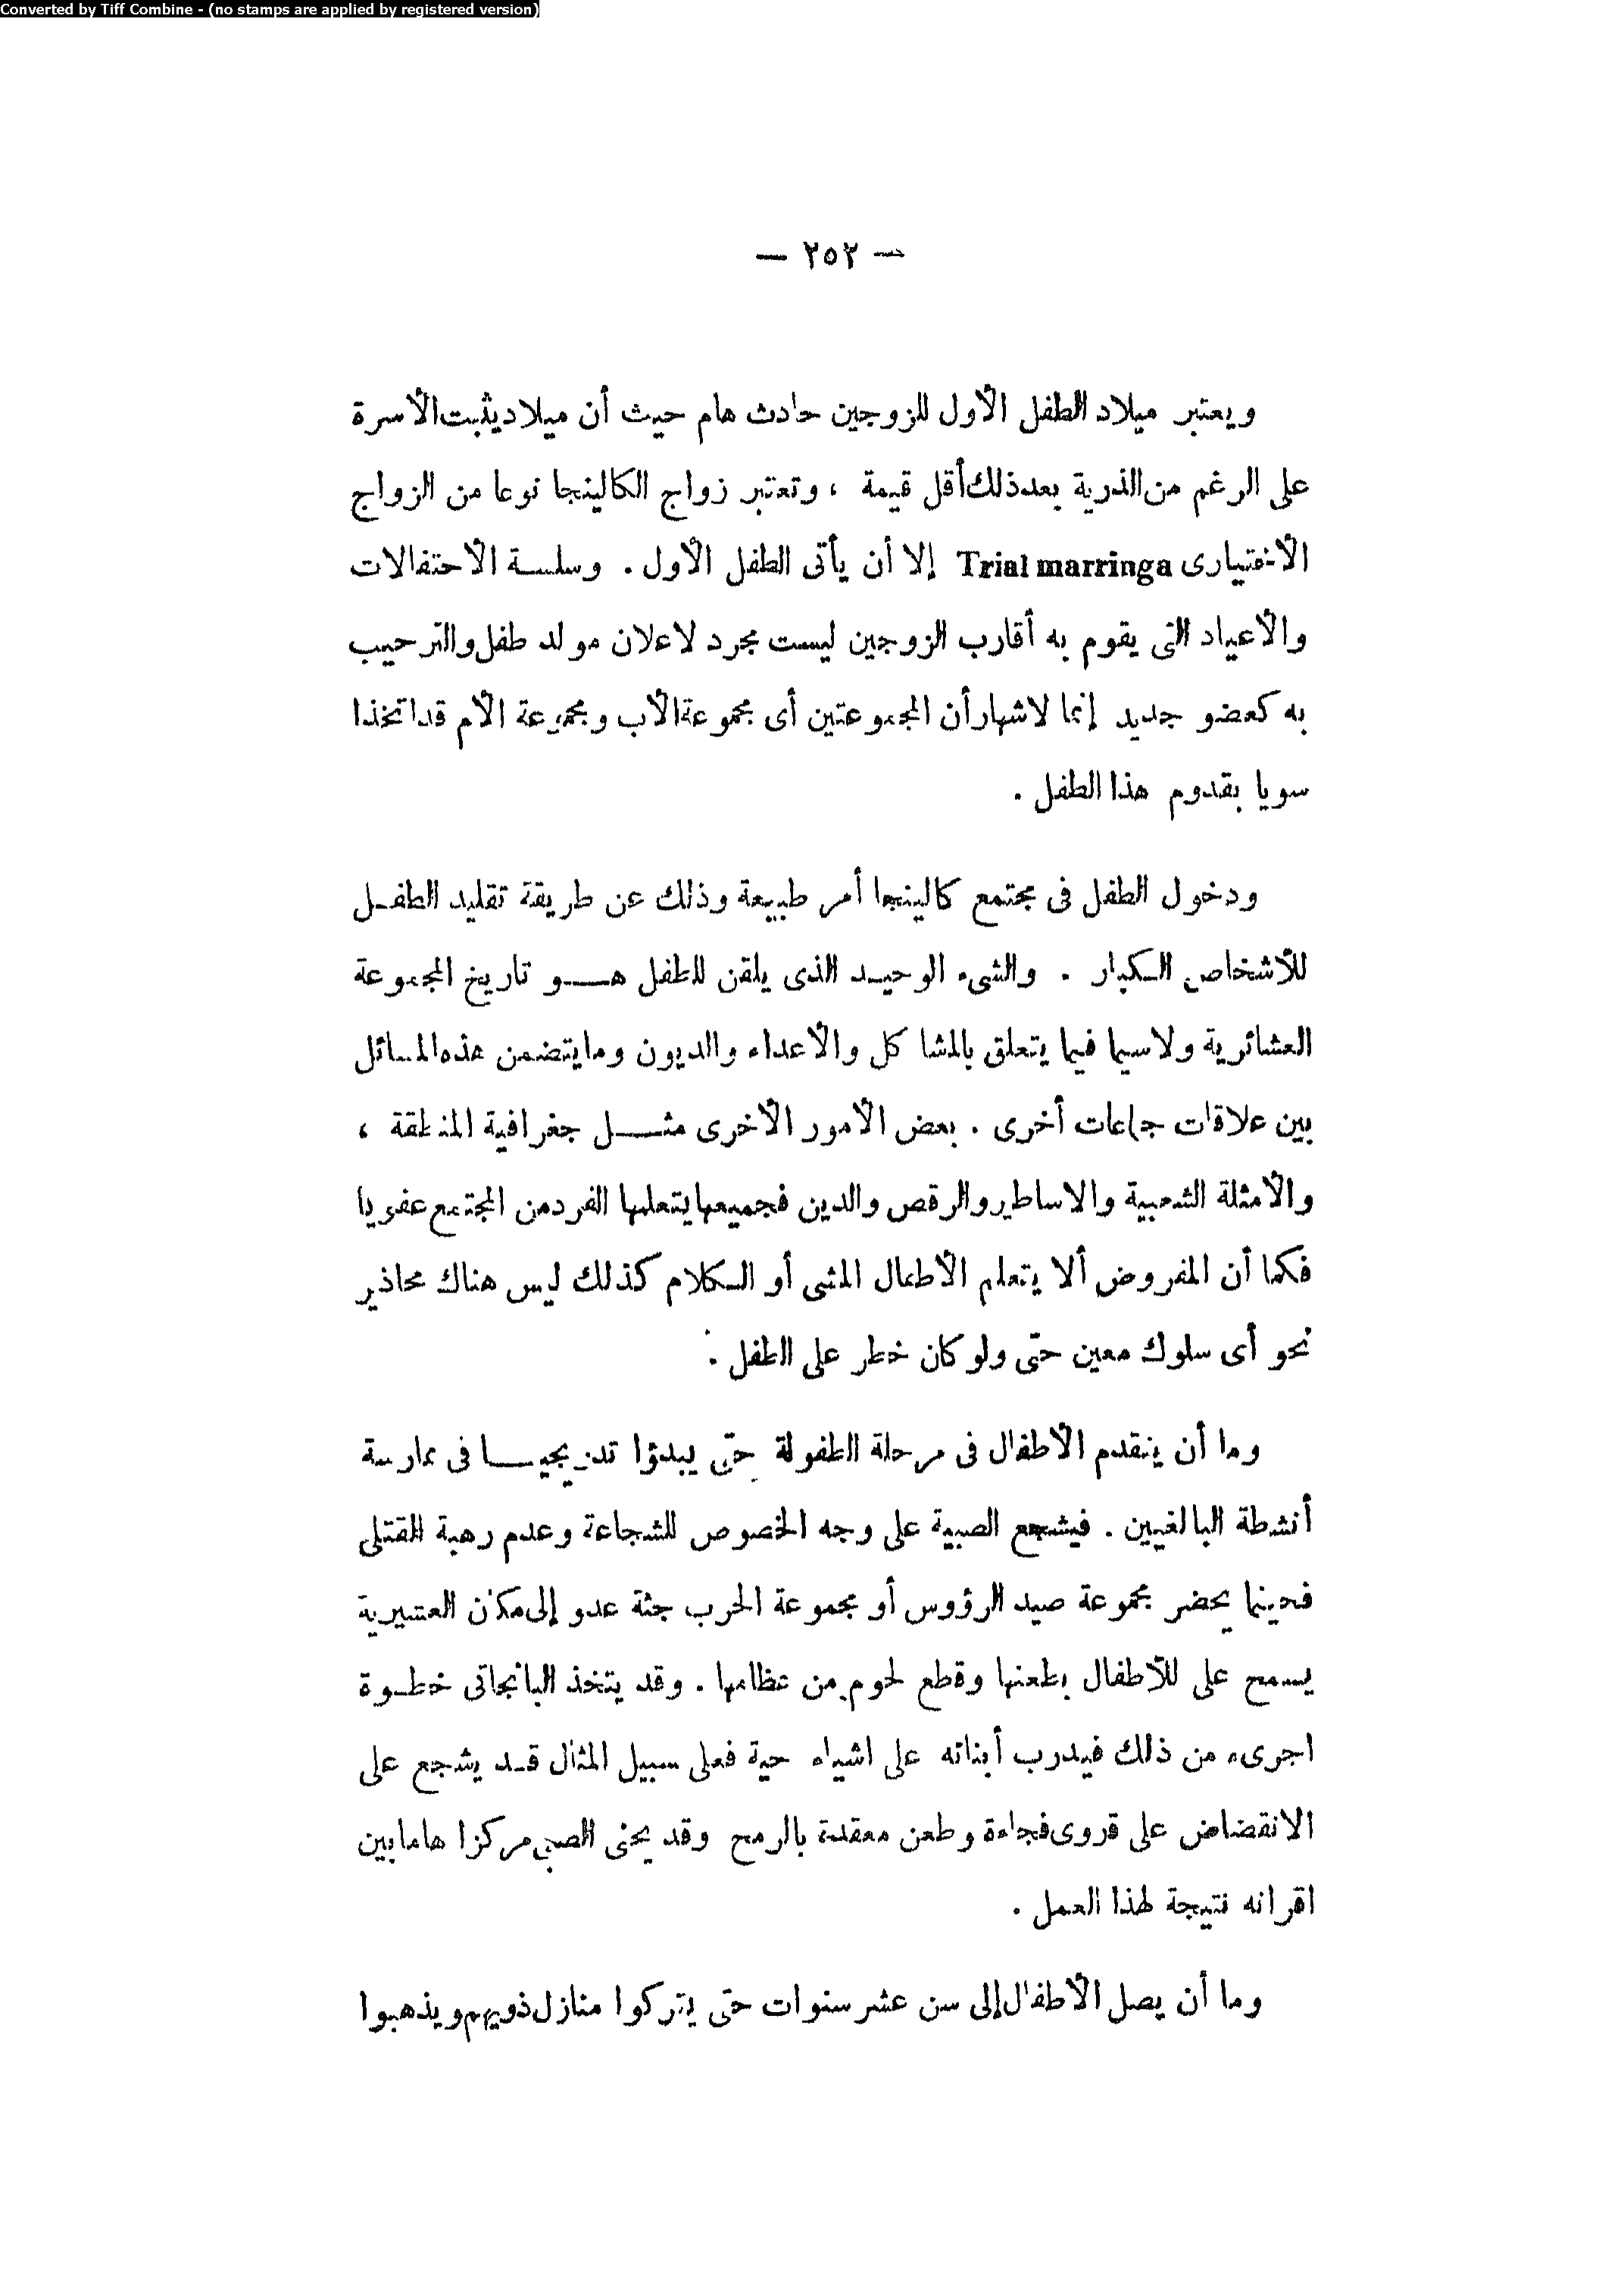 Converted by Tiff Combine - (no stamps are applied by registered version)
— ٢٥٢ —
ويعتبر ميلاد الطفل الأول للزوجين حادث هام حيث أن ميلاد يثبت الأسرة
على الرغم من الذرية بعد ذلك أقل قيمة ، وتعتبر زواج الكالينجا نوعا من الزواج
الأختيارى Trial marringa إلا أن يأتى الطفل الأول . وسلسة الاحتفالات
والأعياد التى يقوم به أقارب الزوجين ليست مجرد لاعلان مولد طفل والترحيب
به كعضو جديد إنما لاشهار أن المجموعتين أى مجموعة الأب ومجموعة الأم قد اتخذا
سويا بقدوم هذا الطفل .
ودخول الطفل فى مجتمع كالينجا أمر طبيعة وذلك عن طريقة تقليد الطفل
للأشخاص الكبار . والشىء الوحيد الذى يلقن للطفل هو تاريخ المجموعة
العشائرية ولاسيما فيما يتعلق بالمشاكل والأعداء والديون وما يتضمن هذه المسائل
بين علاقات جماعات أخرى . بعض الأمور الأخرى مثل جغرافية المنطقة ،
والأمثلة الشعبية والاساطير والرقص والدين فجميعها يتعلمها الفرد من المجتمع عفويا
فكما أن المفروض ألا يتعلم الأطفال المشى أو الكلام كذلك ليس هناك محاذير
نحو أى سلوك معين حتى ولو كان خطر على الطفل .
وما أن يتقدم الأطفال فى مرحلة الطفولة حتى يبدؤا تدريجيا فى ممارسة
أنشطة البالغيين . فيشجع الصبية على وجه الخصوص للشجاعة وعدم رهبة القتلى
فحينما يحضر مجموعة صيد الرؤوس أو مجموعة الحرب جثة عدو إلى مكان العشيرية
يسمح على للأطفال بطعنها وقطع لحوم من عظامها . وقد يتخذ البانجاتى خطوة
اجرىء من ذلك فيدرب أبنائه على اشياء حية فعلى سبيل المثال قد يشجع على
الانقضاض على قروى فجاءة وطعن معقدة بالرمح وقد يحنى الصبى مركزا هاما بين
اقرانه نتيجة لهذا العمل .
وما أن يصل الأطفال إلى سن عشر سنوات حتى يتركوا منازل ذويهم ويذهبوا